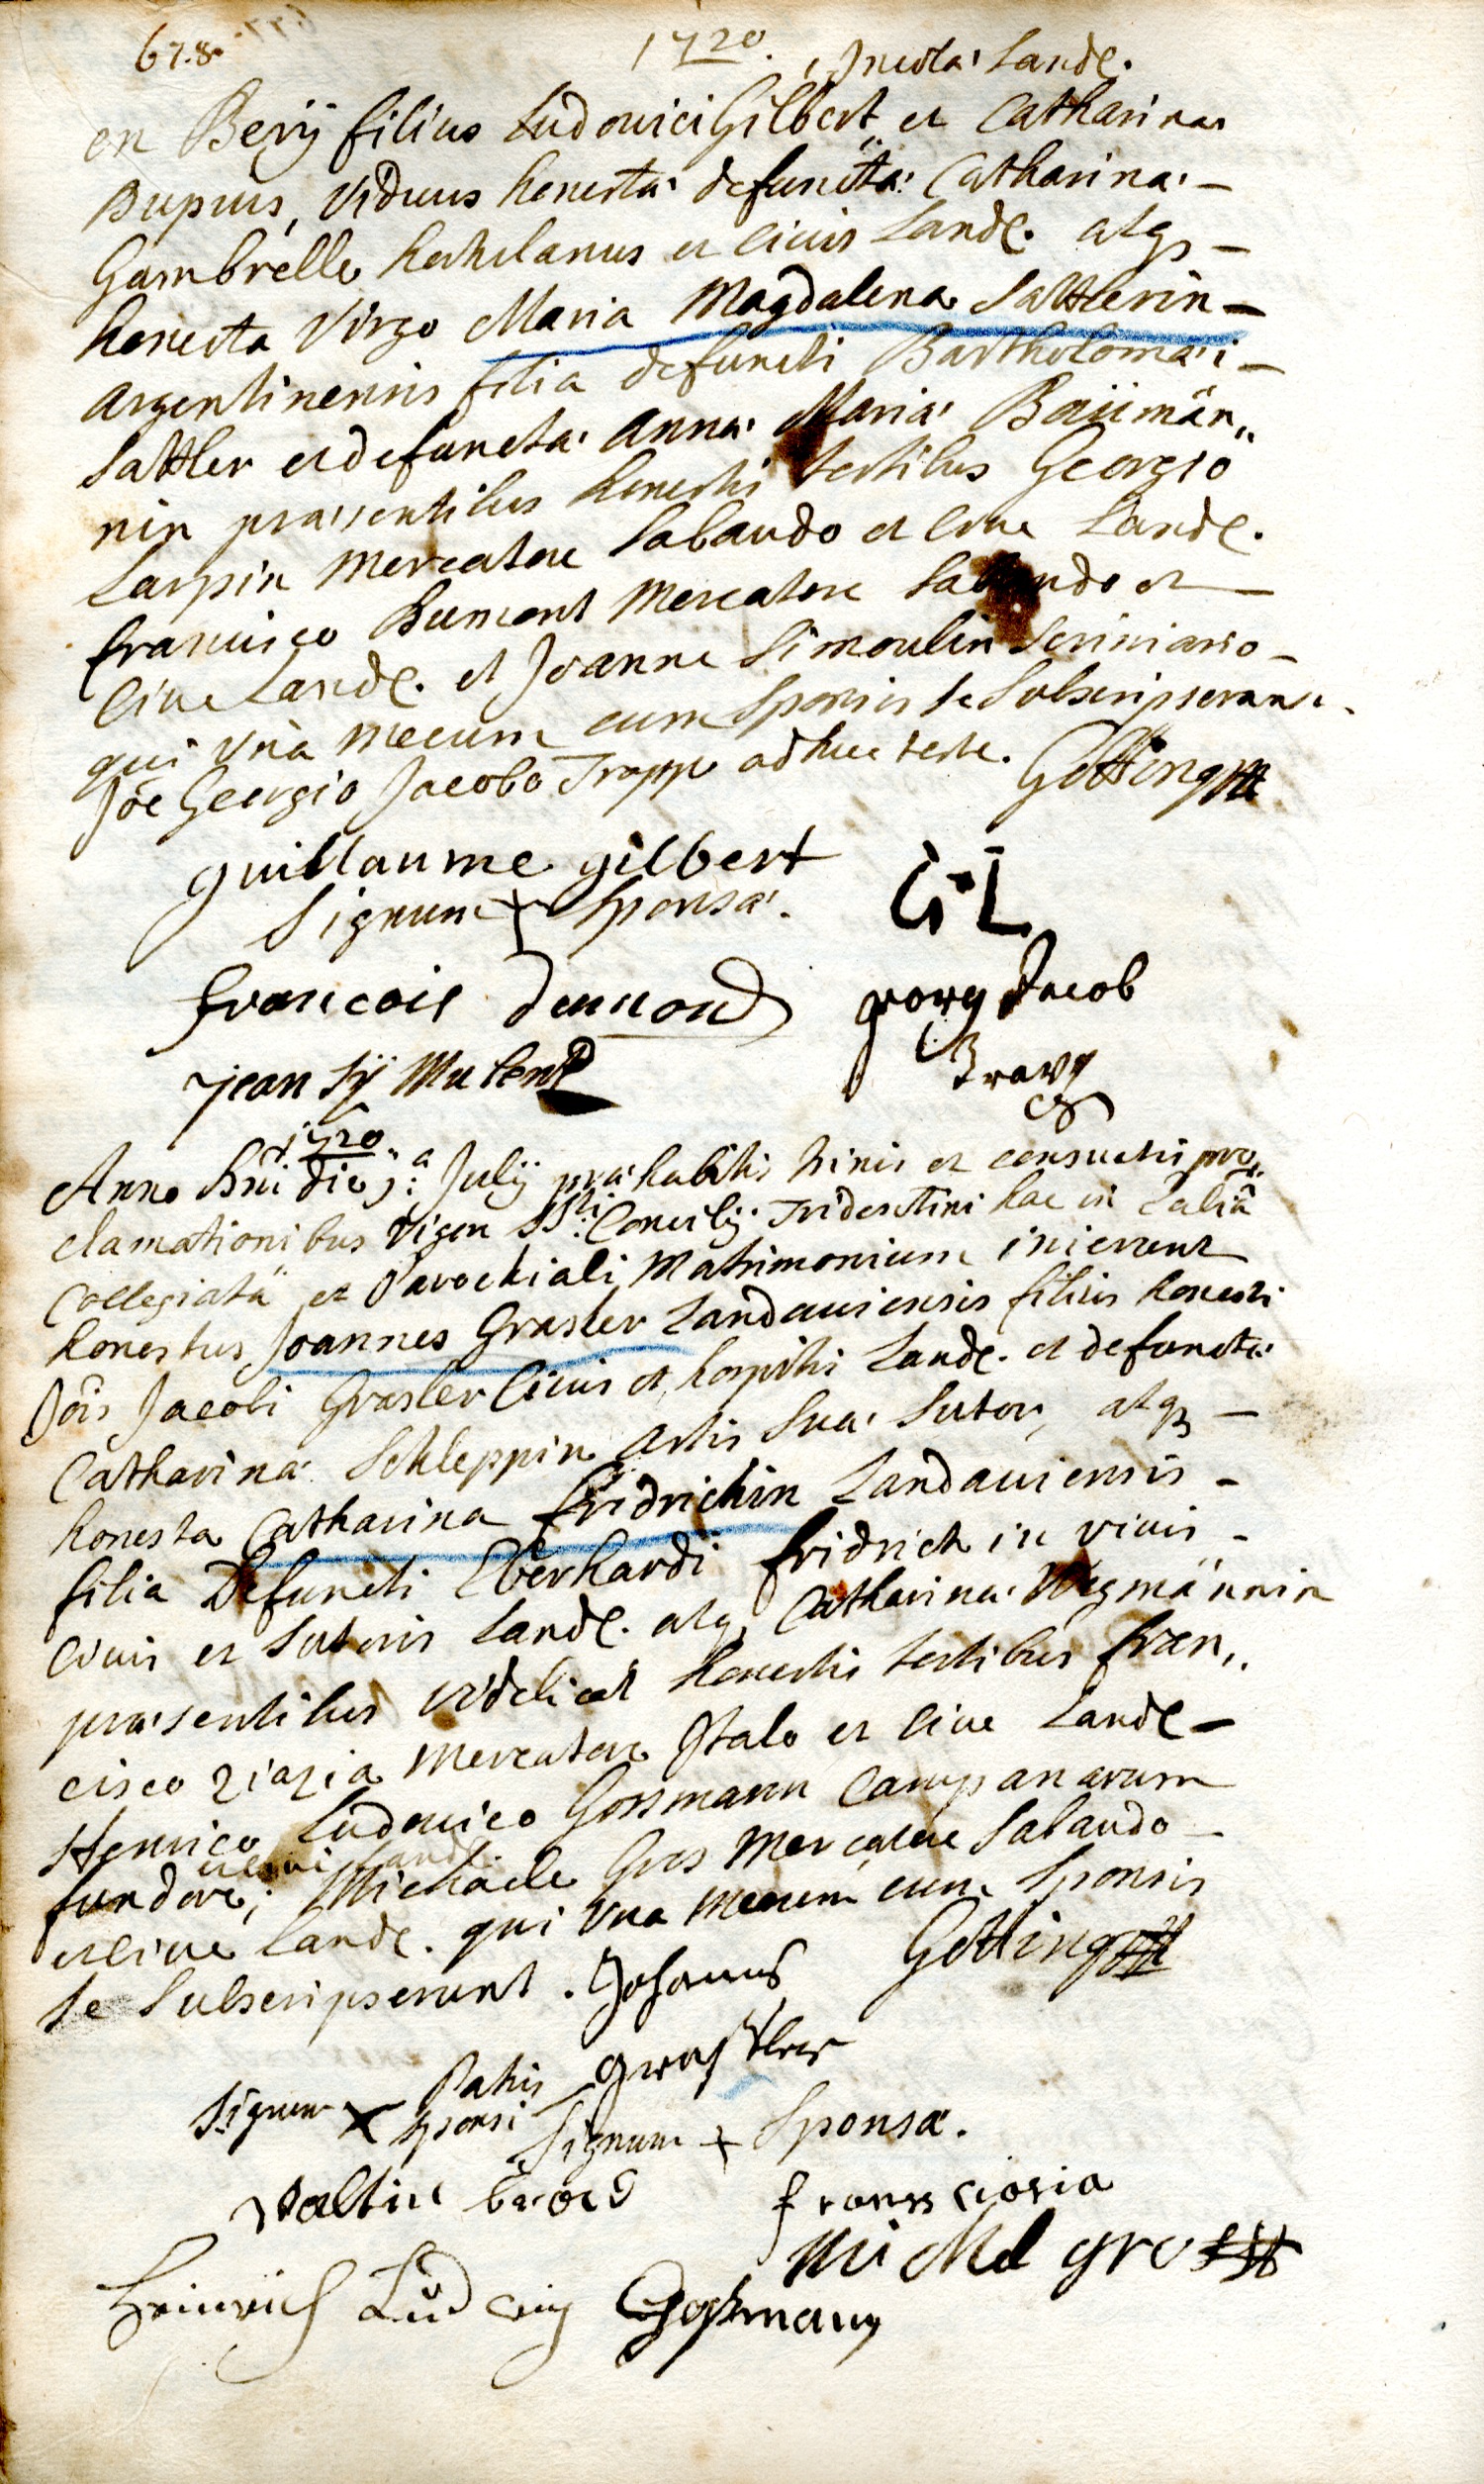 678.
1720. Incola Landȩ.
en Berÿ filius Ludovici Gilbert et Catharinæ
Dupuis, Viduus honestæ defunctæ Catharinæ –
Gambrelle Landȩ. atqȝ –
honesta Virgo Maria Magdalena Sattlerin –
Argentinensis filia defuncti Bartholomæi –
Sattler et defunctæ Annæ Mariæ Baümän„
nin præsentibus honestis testibus Georgio
Larpin Mercatore Sabaudo et Cive Landȩ.
francisco Dumont Mercatore Sabaudo et –
Cive Landȩ. et Joanne Simoulin Scriniario –
qui Vnà mecum cum Sponsis se Subscripserunt.
Jōe Georgio Jacobo Trapp adhuc teste. Götting
guillaume gilbert
Signum + Sponsæ. G·L
francois dumond georg Jacob
Trapp
jean Sÿ Mulen
1720.
Anno Dn̄i die j:ª Julÿ præhabitis trinis et consuetis pro„
clamationibus Vigore SSti: Concilÿ Tridentini hac in Ecclīa
Collegiatâ et Parochiali Matrimonium inierunt
honestus Joannes Grasler Landauiensis filius honesti
Jōis Jacobi Grasler Ciuis et hospitis Landȩ. et defunctæ
Catharinæ Schleppin artis Suæ Sutor, atqȝ –
honesta Catharina fridrichin Landauiensis –
filia Defuncti Eberhardi fridrich in viuis –
Ciuis et Sutoris Landȩ. atqȝ Catharinæ Wegmännin
præsentibus videlicet honestis testibus fran„
cisco Ziazia Mercatore Italo et Ciue Landȩ –
Henrico Ludouico Gossmann Campanarum
fundore; Michaele Gros Mercatore Sabaudo –
et Ciue Landȩ. qui Vna Mecum cum Sponsis
se Subscripserunt. Johannes Götting
grastler
Signum X Patris Sponsi Signum + Sponsæ.
Valtin
Michel gros
Heinrich Ludwig Goßmann